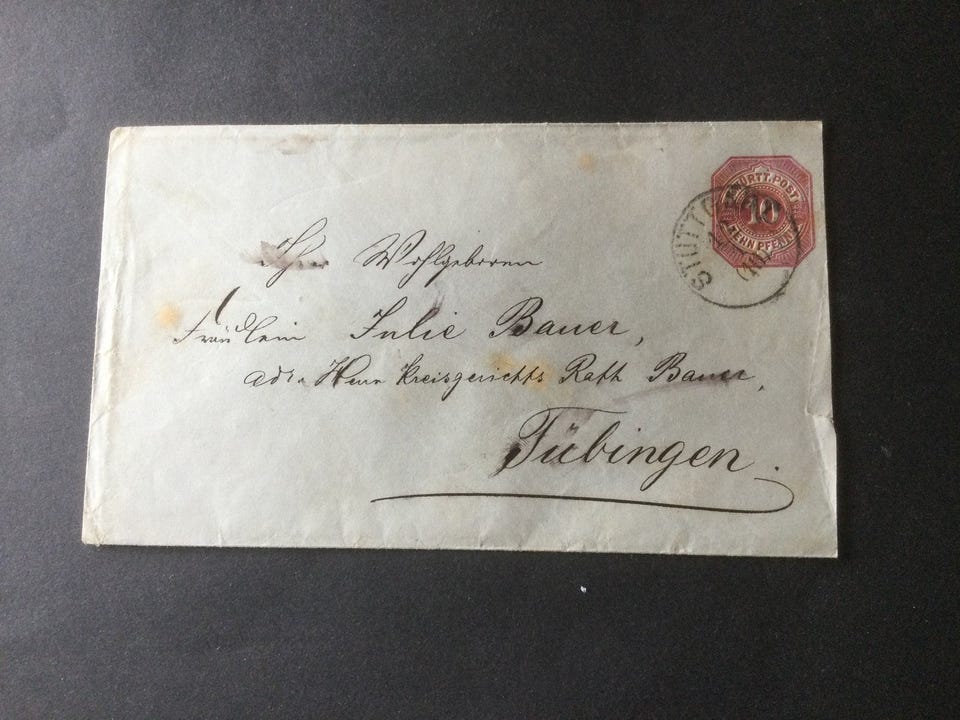 K. WÜRTT. POST
10
ZEHN PFENNIG
STUTTGART
Ihrer Wohlgeboren
Fräulein Julie Bauer,
adr. Herrn Kreisgerichts Rath Bauer,
Tübingen.